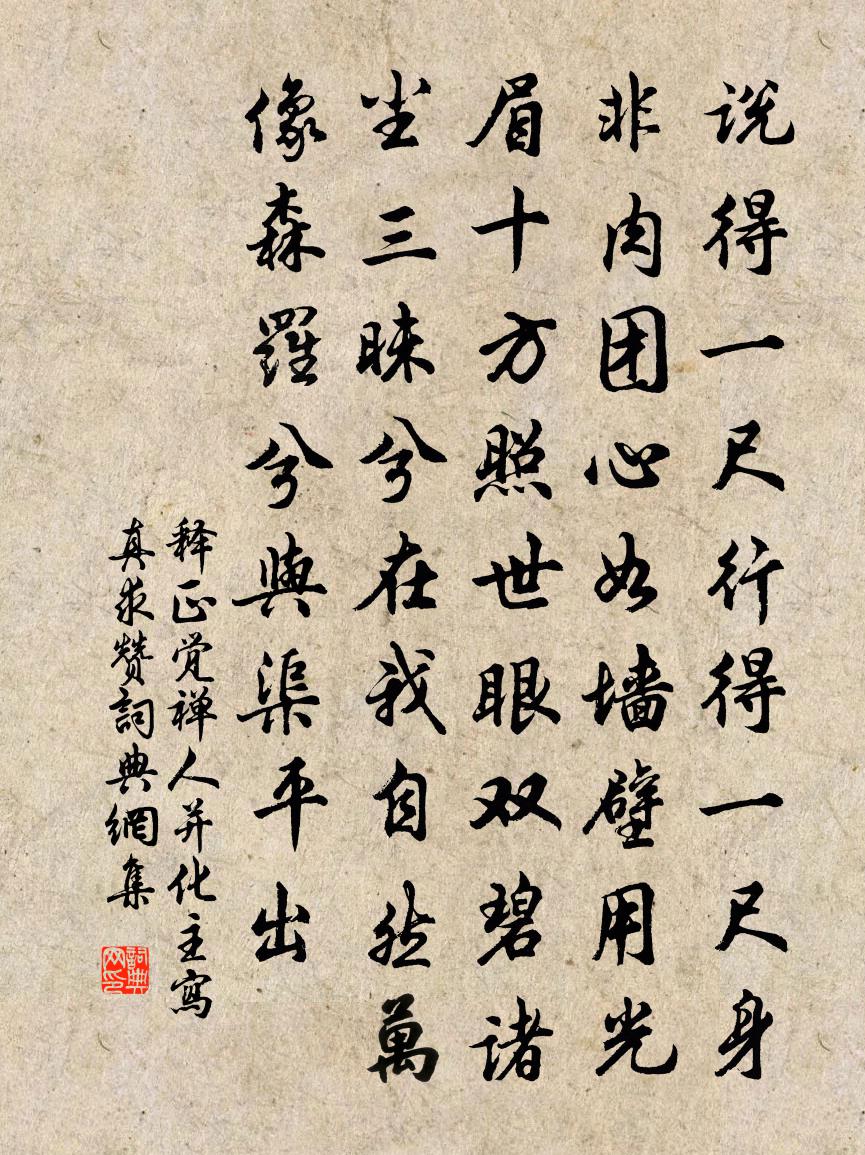 说得一尺行得一尺身
非肉团心如墙壁用光
眉十方照世眼双碧诸
尘三昧兮在我自然萬
像森羅兮與渠平出
释正觉禅人并化主寫
真求赞詞典網集
詞典网印